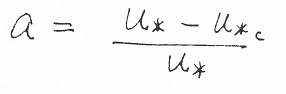 a = \frac{u_* - u_{*c}}{u_*}